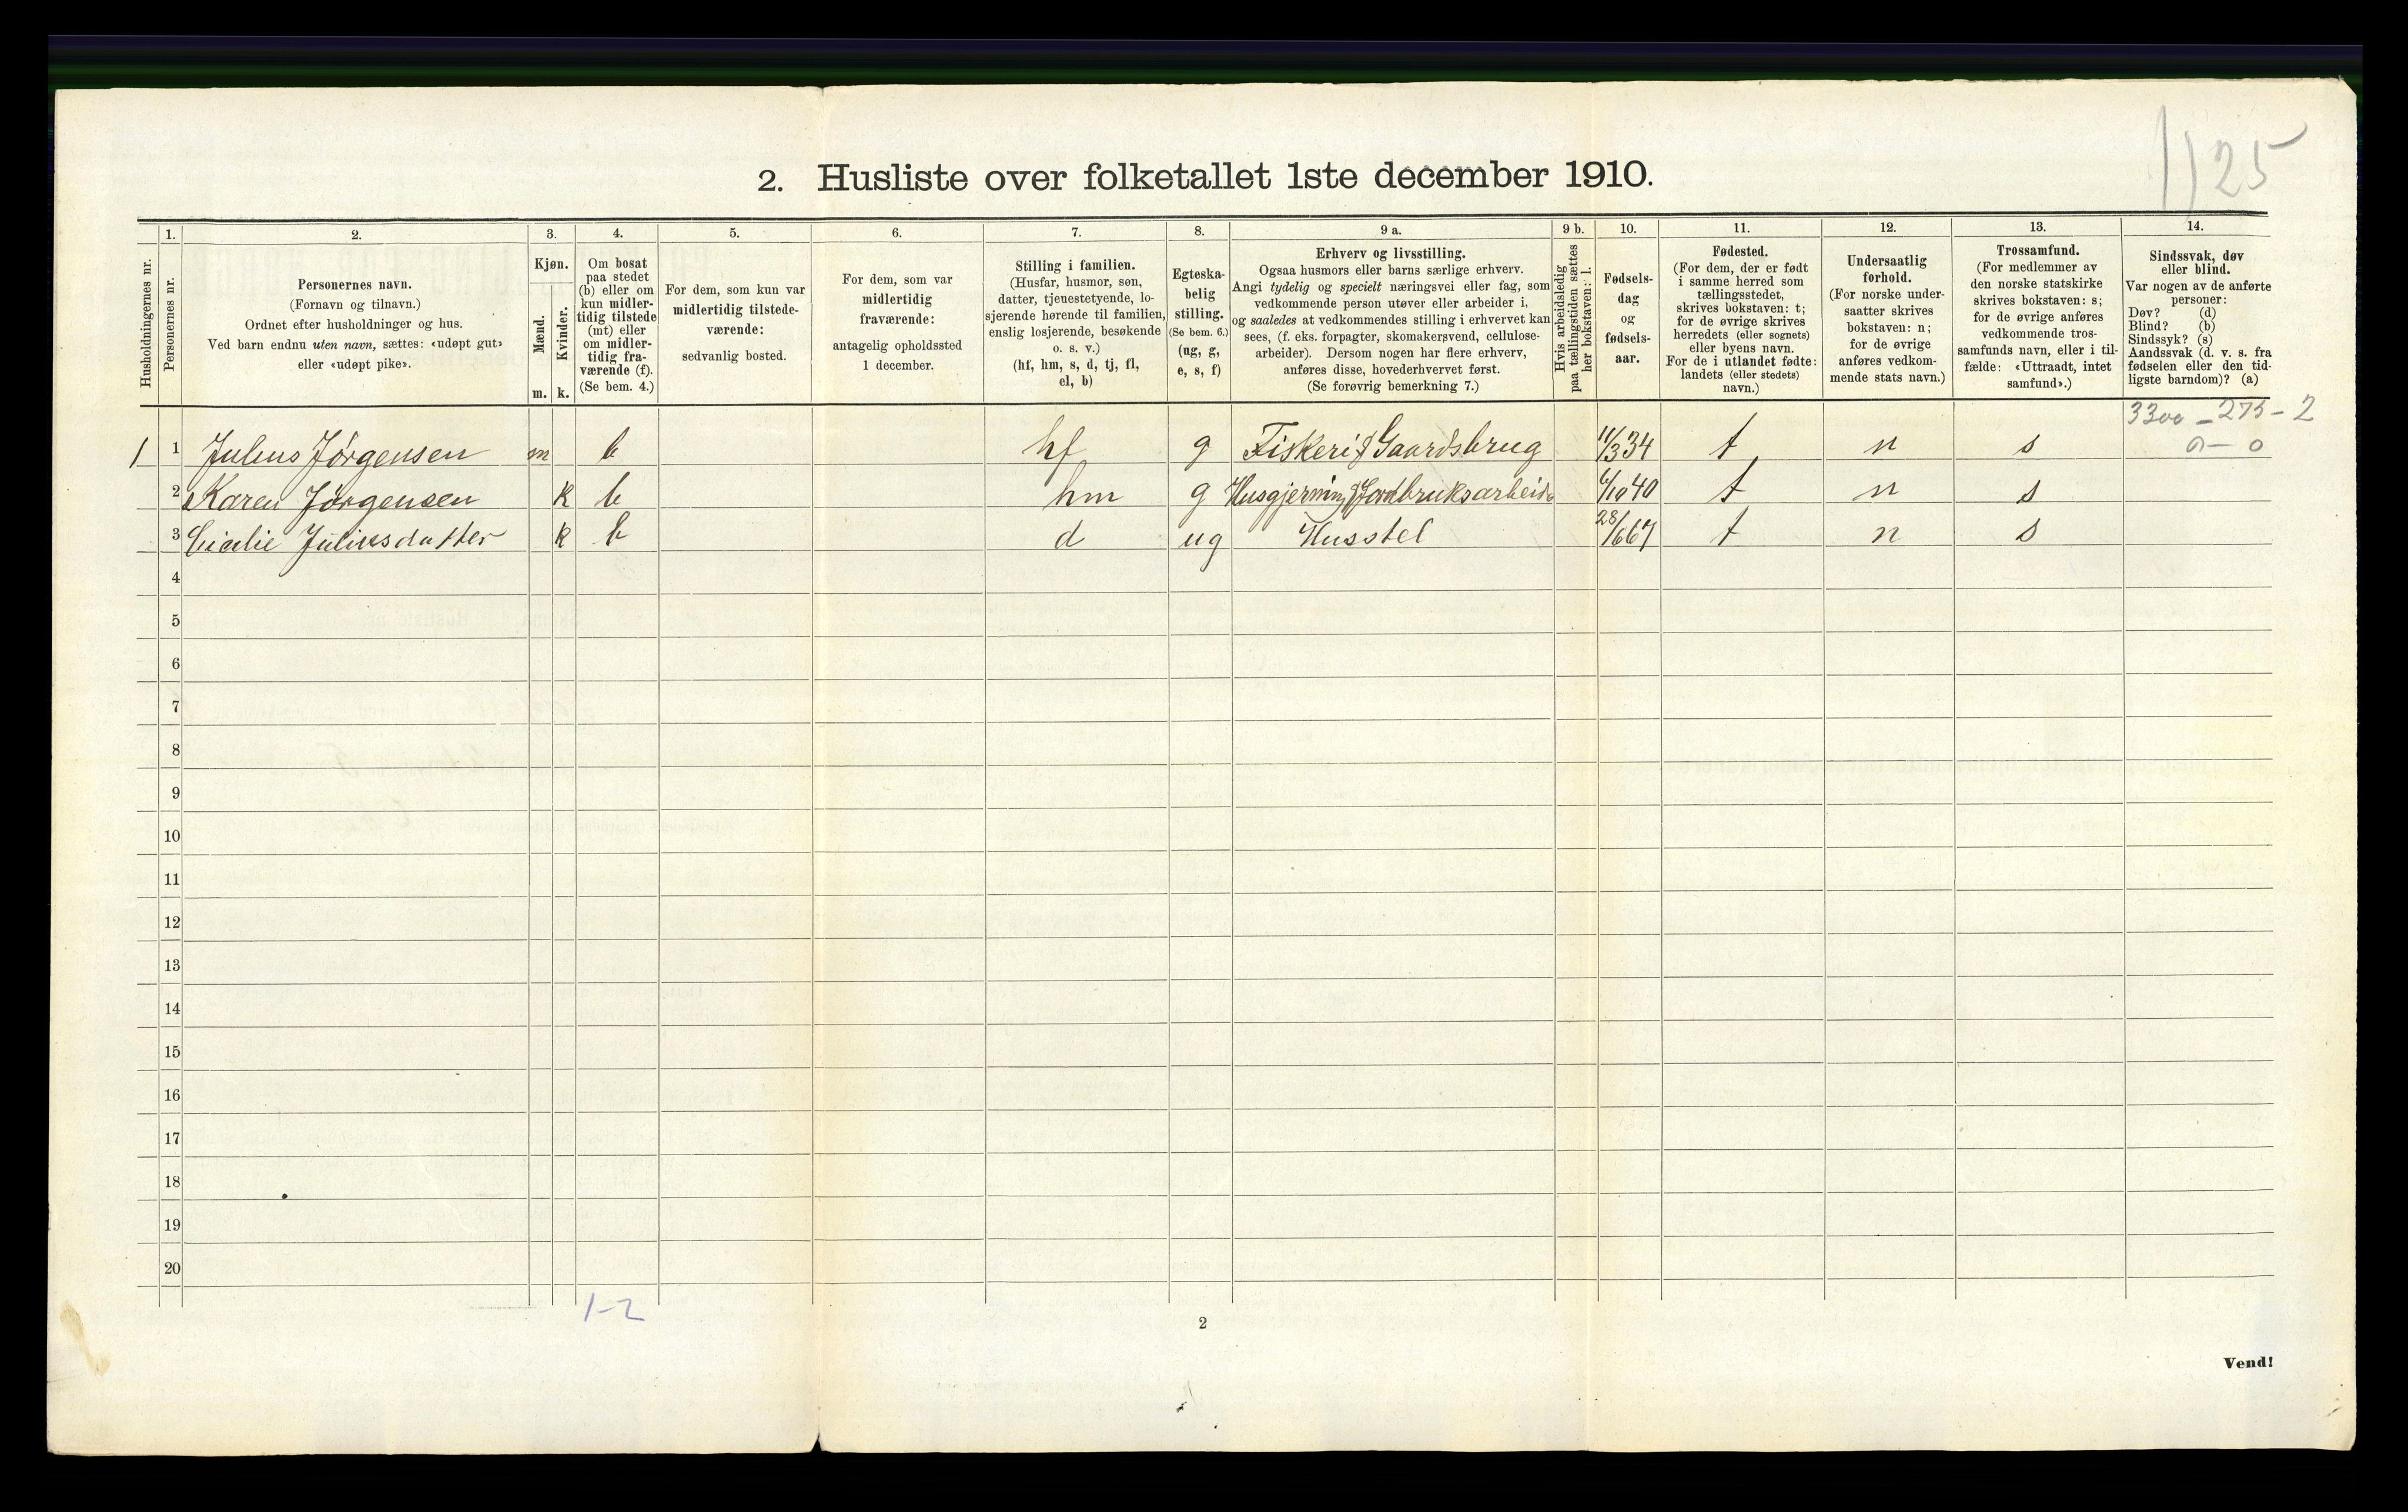 1125
2. Husliste over folketallet 1ste december 1910.
Husholdningernes nr.
1.
Personernes nr.
2.
Personernes navn.
(Fornavn og tilnavn.)
Ordnet efter husholdninger og hus.
Ved barn endnu uten navn, sættes: «udøpt gut»
eller «udøpt pike».
3.
Kjøn.
Mænd.
m.
Kvinder.
k.
4.
Om bosat
paa stedet
(b) eller om
kun midler-
tidig tilstede
(mt) eller
om midler-
tidig fra-
værende (f).
(Se bem. 4.)
5.
For dem, som kun var
midlertidig tilstede-
værende:
sedvanlig bosted.
6.
For dem, som var
midlertidig
fraværende:
antagelig opholdssted
1 december.
7.
Stilling i familien.
(Husfar, husmor, søn,
datter, tjenestetyende, lo-
sjerende hørende til familien,
enslig losjerende, besøkende
o. s. v.)
(hf, hm, s, d, tj, fl,
el, b)
8.
Egteska-
belig
stilling.
(Se bem. 6.)
(ug, g,
e, s, f)
9 a.
Erhverv og livsstilling.
Ogsaa husmors eller barns særlige erhverv.
Angi tydelig og specielt næringsvei eller fag, som
vedkommende person utøver eller arbeider i,
og saaledes at vedkommendes stilling i erhvervet kan
sees, (f. eks. forpagter, skomakersvend, cellulose-
arbeider). Dersom nogen har flere erhverv,
anføres disse, hovederhvervet først.
(Se forøvrig bemerkning 7.)
9 b.
Hvis arbeidsledig
paa tællingstiden sættes
her bokstaven: l.
10.
Fødsels-
dag
og
fødsels-
aar.
11.
Fødested.
(For dem, der er født
i samme herred som
tællingsstedet,
skrives bokstaven: t;
for de øvrige skrives
herredets (eller sognets)
eller byens navn.
For de i utlandet fødte:
landets (eller stedets)
navn.)
12.
Undersaatlig
forhold.
(For norske under-
saatter skrives
bokstaven: n;
for de øvrige
anføres vedkom-
mende stats navn.)
13.
Trossamfund.
(For medlemmer av
den norske statskirke
skrives bokstaven: s;
for de øvrige anføres
vedkommende tros-
samfunds navn, eller i til-
fælde: «Uttraadt, intet
samfund».)
14.
Sindssvak, døv
eller blind.
Var nogen av de anførte
personer:
Døv? (d)
Blind? (b)
Sindssyk? (s)
Aandssvak (d. v. s. fra
fødselen eller den tid-
ligste barndom)? (a)
3300 - 275 - 2
0 - 0
1 1 Julius Jørgensen m b hf g Fiskeri & Gaardsbrug 11/3 34 t n s
2 Karen Jørgensen k b hm g Husgjerning & Jordbruksarbeide 6/10 40 t n s
3 Cicelie Juliusdatter k b d ug Husstel 28/6 67 t n s
4
5
6
7
8
9
10
11
12
13
14
15
16
17
18
19
20
1-2
2
Vend!